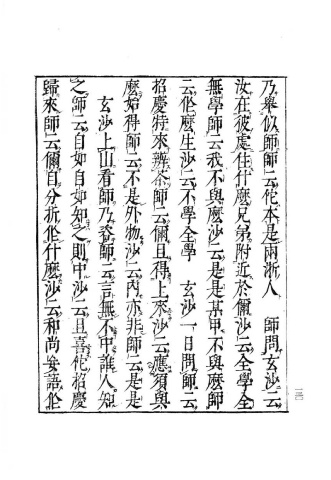 乃擧似師師云佗本是兩浙人　師問玄沙云
汝在彼處住什麼兄弟附近於儞沙云全學全
無學師云我不與麼沙云是是某甲不與麼師
云佗麼生沙云不學全學　玄沙一日問師云
招慶特來辨茶師云儞且得上來沙云應須與
麼始得師云不是外物沙云内亦非師云是是
玄沙上山看師乃來師云言無不中誰人知
之師云自如自如知之則中沙云且喜佗招慶
歸來師云儞自分折佗什麼沙云和尚妄語佗